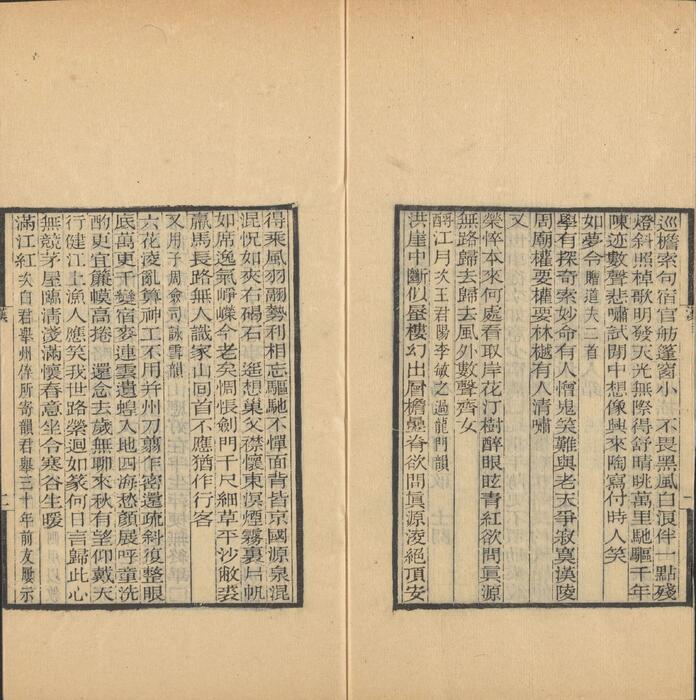 巡檐索句宿官舫篷窗小 不畏黑風白浪伴一點殘
燈斜照棹歌明發天光無際得舒晴眺萬里馳驅千年
陳迹數聲悲嘯試閒中想像興來陶寫付時人笑
如夢令贈道夫二首
學有探奇索妙命有人憎鬼笑難與老天爭寂寞漢陵
周廟權要權要林樾有人清嘯
又
榮悴本來何處看取岸花汀樹醉眼眩青紅欲問眞源
無路歸去歸去風外數聲齊女
酹江月次王君陽李敏之過龍門韻
洪崖中斷似蜃樓幻出層檐疊脊欲問眞源凌絕頂安
得乘風羽翮勢利相忘驅馳不憚面背皆京國源泉混
混怳如夾右碣石 遥想巢父襟懷東溟煙霧裏片帆
如席逸氣崢嶸今老矣惆悵劍門千尺細草平沙敝裘
羸馬長路無人識家山回首不應猶作行客
又用子周僉司詠雪韻
六花凌亂算神工不用并州刀翦作密還疏斜復整眼
底萬更千變宿麥連雲遺蝗入地四海愁顏展呼童洗
酌更宜簾幙高捲 還念去歲無聊來秋有望仰戴天
行健江上漁人應笑我世路縈迴如篆何日言歸此心
無競茅屋臨清淺滿懷春意坐令寒谷生暖
滿江紅次白君舉州倅所寄韻君舉三十年前友屢示